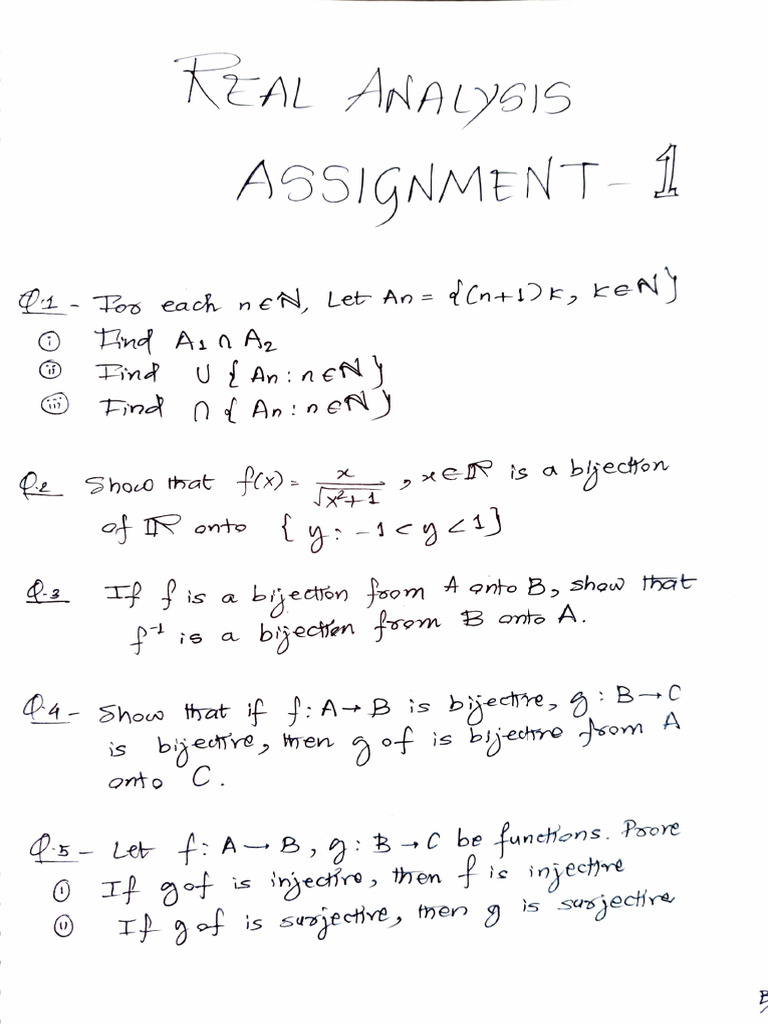 REAL ANALYSIS
ASSIGNMENT - 1
Q.1 - For each n∈ℕ, Let An = {(n+1)k, k∈ℕ}
(i) Find A₁ ∩ A₂
(ii) Find ∪ {An : n∈ℕ}
(iii) Find ∩ {An : n∈ℕ}
Q.2 Show that f(x) = x/√(x²+1), x∈ℝ is a bijection
of ℝ onto {y : -1 < y < 1}
Q.3 If f is a bijection from A onto B, show that
f⁻¹ is a bijection from B onto A.
Q.4 - Show that if f : A → B is bijective, g : B → C
is bijective, then g of is bijective from A
onto C.
Q.5 - Let f : A → B, g : B → C be functions. Prove
(i) If g of is injective, then f is injective
(ii) If g of is surjective, then g is surjective